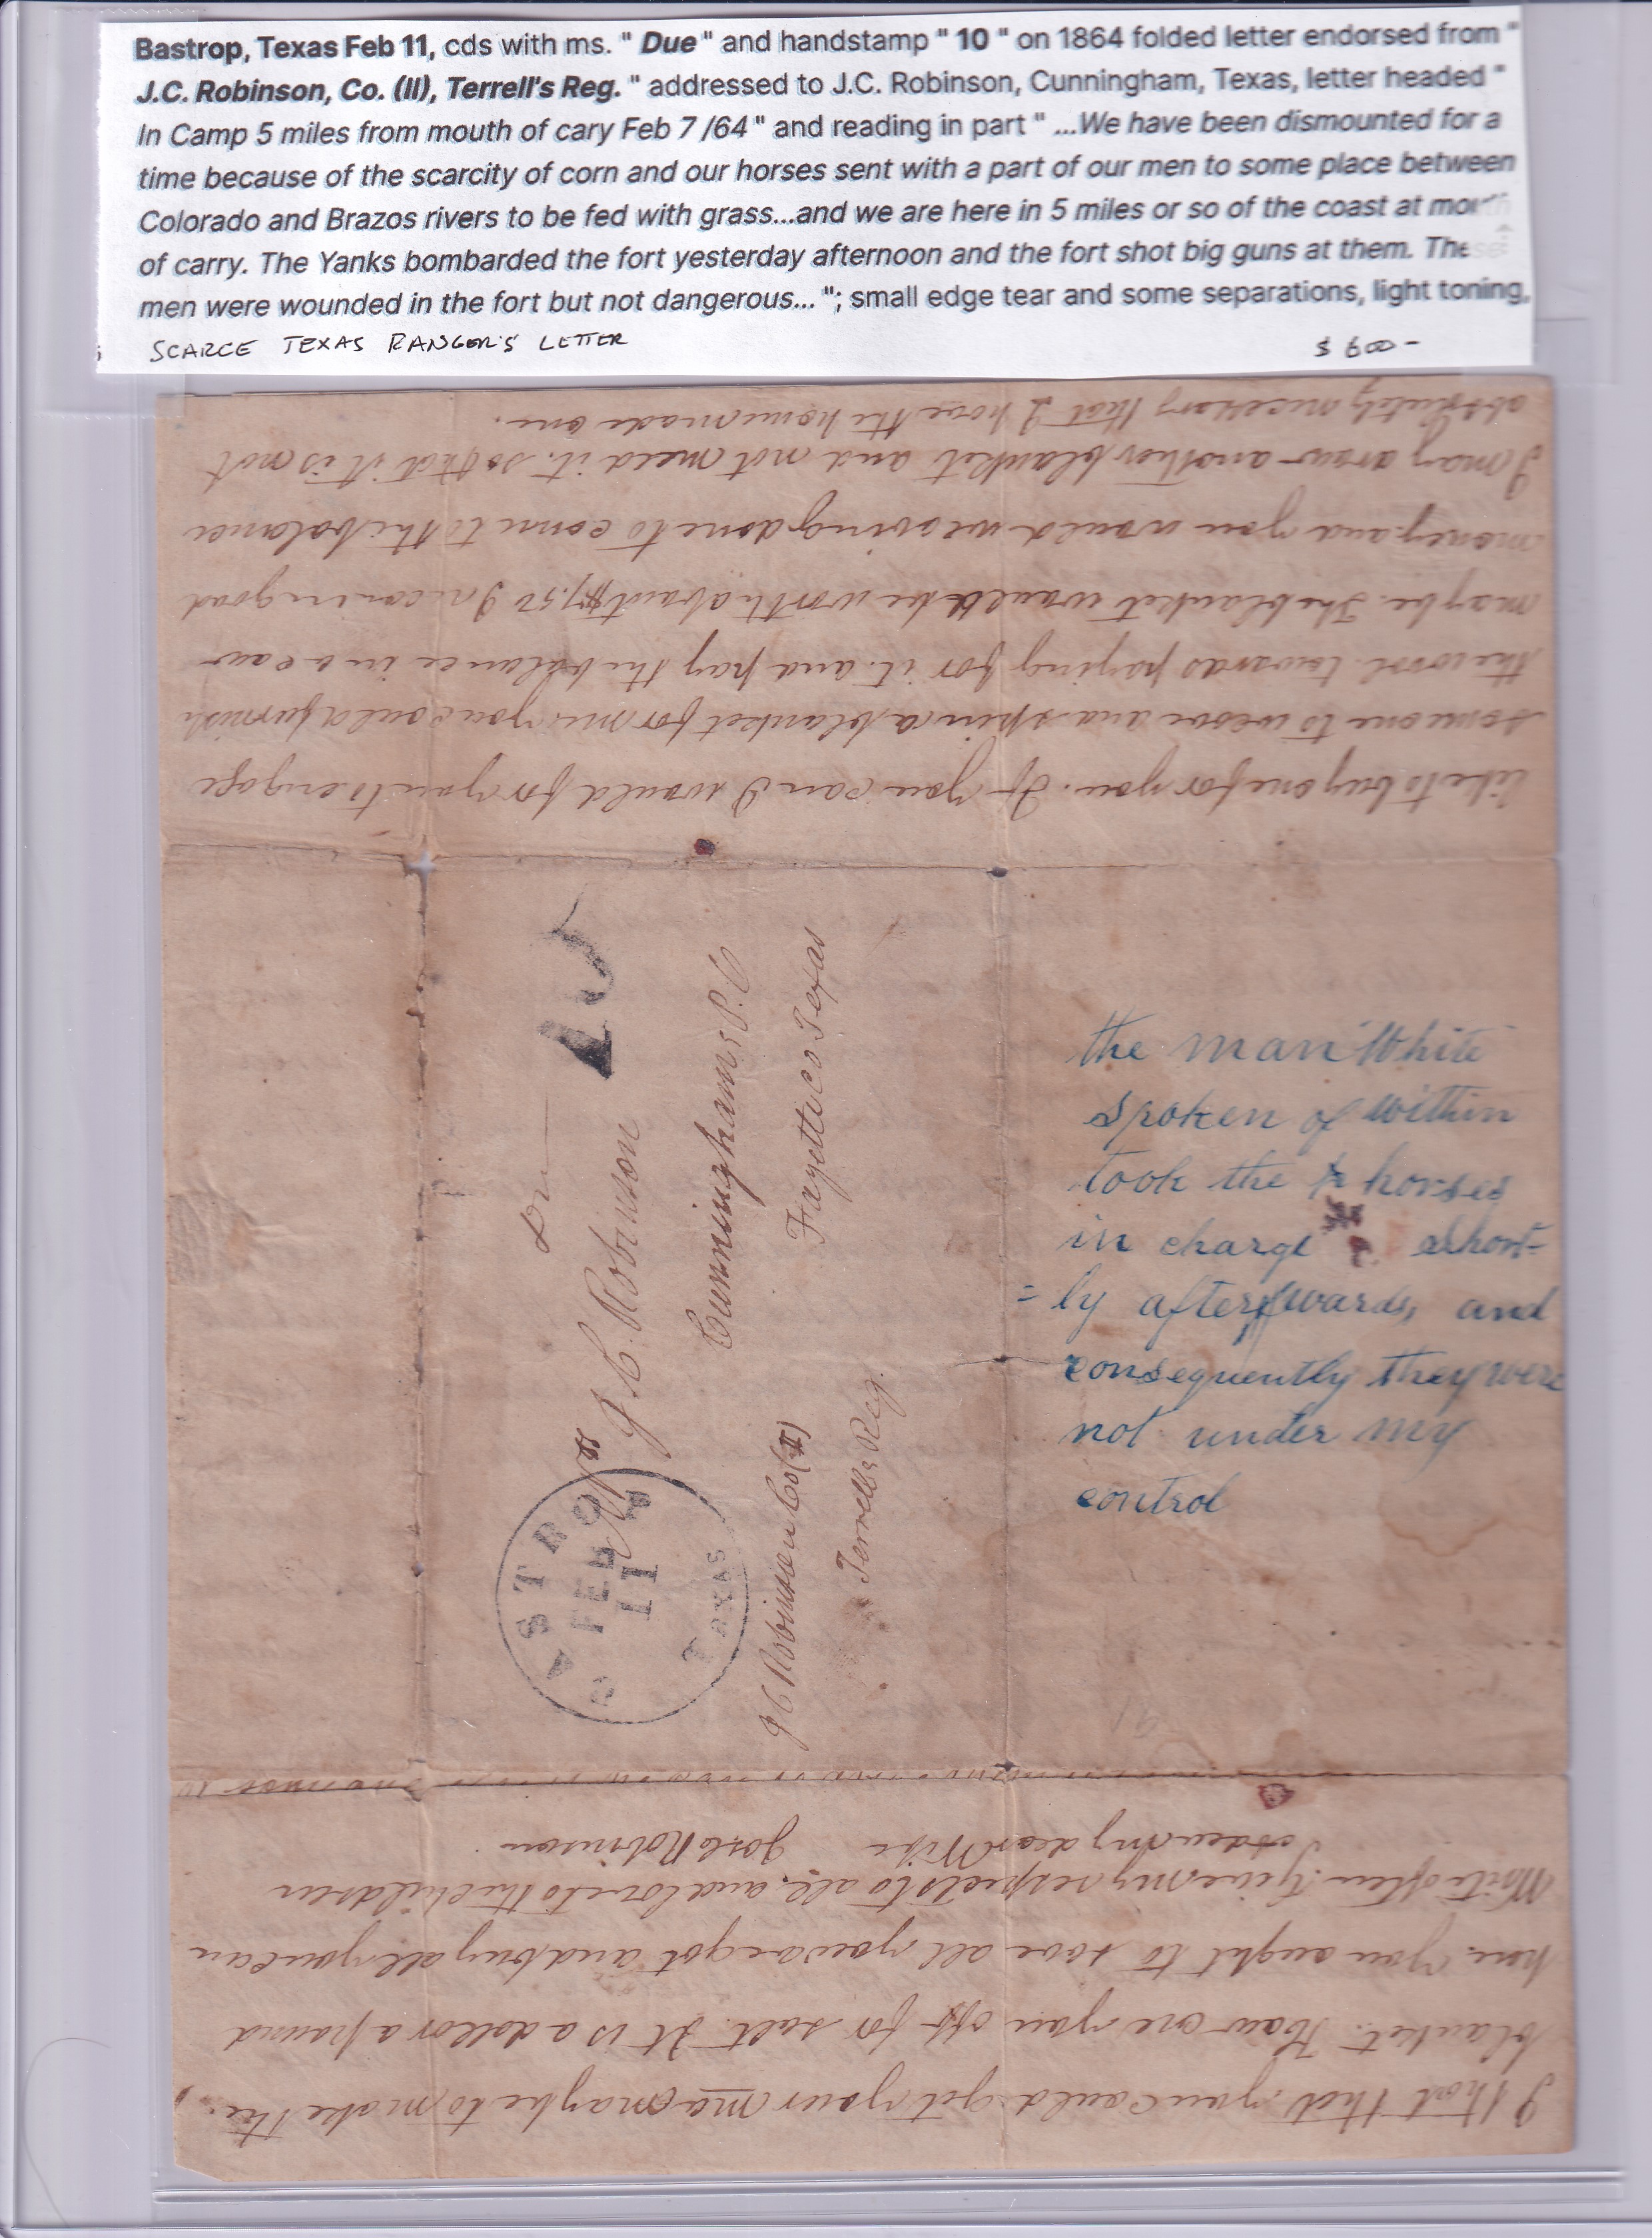 Bastrop, Texas Feb 11, cds with ms. " Due " and handstamp " 10 " on 1864 folded letter endorsed from "
J.C. Robinson, Co. (II), Terrell's Reg. " addressed to J.C. Robinson, Cunningham, Texas, letter headed "
In Camp 5 miles from mouth of cary Feb 7 /64 " and reading in part " ...We have been dismounted for a
time because of the scarcity of corn and our horses sent with a part of our men to some place between
Colorado and Brazos rivers to be fed with grass...and we are here in 5 miles or so of the coast at
of carry. The Yanks bombarded the fort yesterday afternoon and the fort shot big guns at them. These
men were wounded in the fort but not dangerous... "; small edge tear and some separations, light toning,
SCARCE TEXAS RANGER'S LETTER $ 600 -
like to buy one for you. If you can I would for you to engage
someone to weave and spin a blanket for me. you could furnish
the wool towards paying for it. and pay the balance in a cow
maybe. The blanket would be worth about $7.50 in good
money and you would weaving done to come to the balance
I may draw another blanket and not need it. so that it is not
absolutely necessary that I have the homemade one.
BASTROP
FEB
11
TEXAS
Due
10
Mrs J. C. Robinson
Cunninghams P.O
Fayette Co Texas
J C Robinson Co (II)
Terrells Reg.
the man White
spoken of within
took the horses
in charge short-
=ly afterwards, and
consequently they were
not under my
control
I that you could get your ma maybe to make the
blanket. How are you off for salt. It is a dollar a pound
here. You ought to save all you've got and buy all you can
Write often. Give my respects to all. and love to the children
Adieu My dear Wife Jos C Robinson